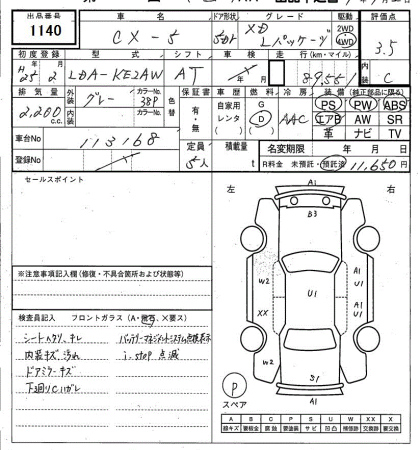 出品番号 車名 ドア形状 グレード 駆動 評価点
1140 CX-5 5Dr XD Lパッケージ 2WD 4WD 3.5
初度登録 型式 シフト 車検 走行(km・マイル) 内装
H25年2月 LDA-KE2AW AT 年 月 89,551 C
排気量 外装 カラーNo. 色替 保証書 車歴 燃料 冷房 装備(純正部品に限る)
2,200 c.c. グレー 38P 有・無 自家用 レンタ ( ) G D ( ) AAC PS PW ABS
エアB AW SR
内装 カラーNo. 革 ナビ TV
車台No 113168 定員 積載量 名変期限 年 月 日
登録No 5人 t R料金 未預託・預託済 11,650円
セールスポイント 左 右
A1
B3
W2 U1 A1 U1
XX A1
W2
S1
A1
※注意事項記入欄(修復・不具合箇所および状態等)
検査員記入 フロントガラス(A・飛石、×要ス)
シートヘタリ、キレ バッテリーマネジメントシステム点検表示
内装キズ、汚れ i-stop 点滅
ドアミラーキズ
下廻りサビ
P
スペア
A B C P S U W X XX
線キズ 要板金 腐蝕 要塗装 サビ 凹凸 補修跡 要交換 交換済